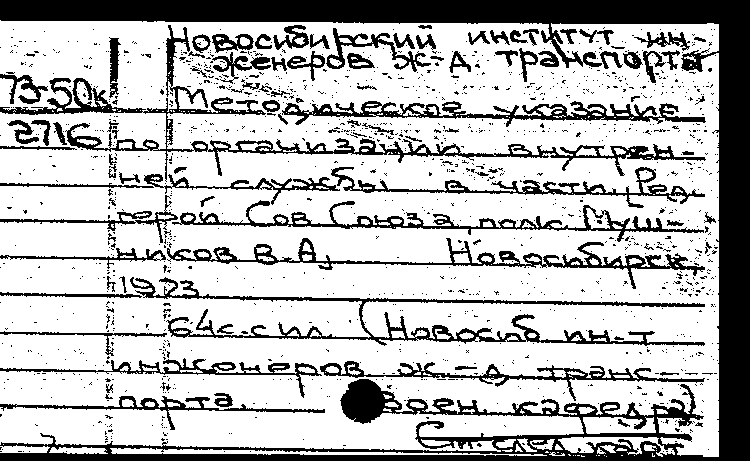 Новосибирский институт ин-
женеров ж.-д. транспорта.
73-50к Методическое указание
2716 по организации внутрен-
ней службы в части. [Ред.
герой Сов Союза, полк Муш-
ников В.А,] Новосибирск,
1973
64с. с ил. (Новосиб ин-т
инженеров ж.-д. транс-
порта. Воен. кафедра)
См. след. карт